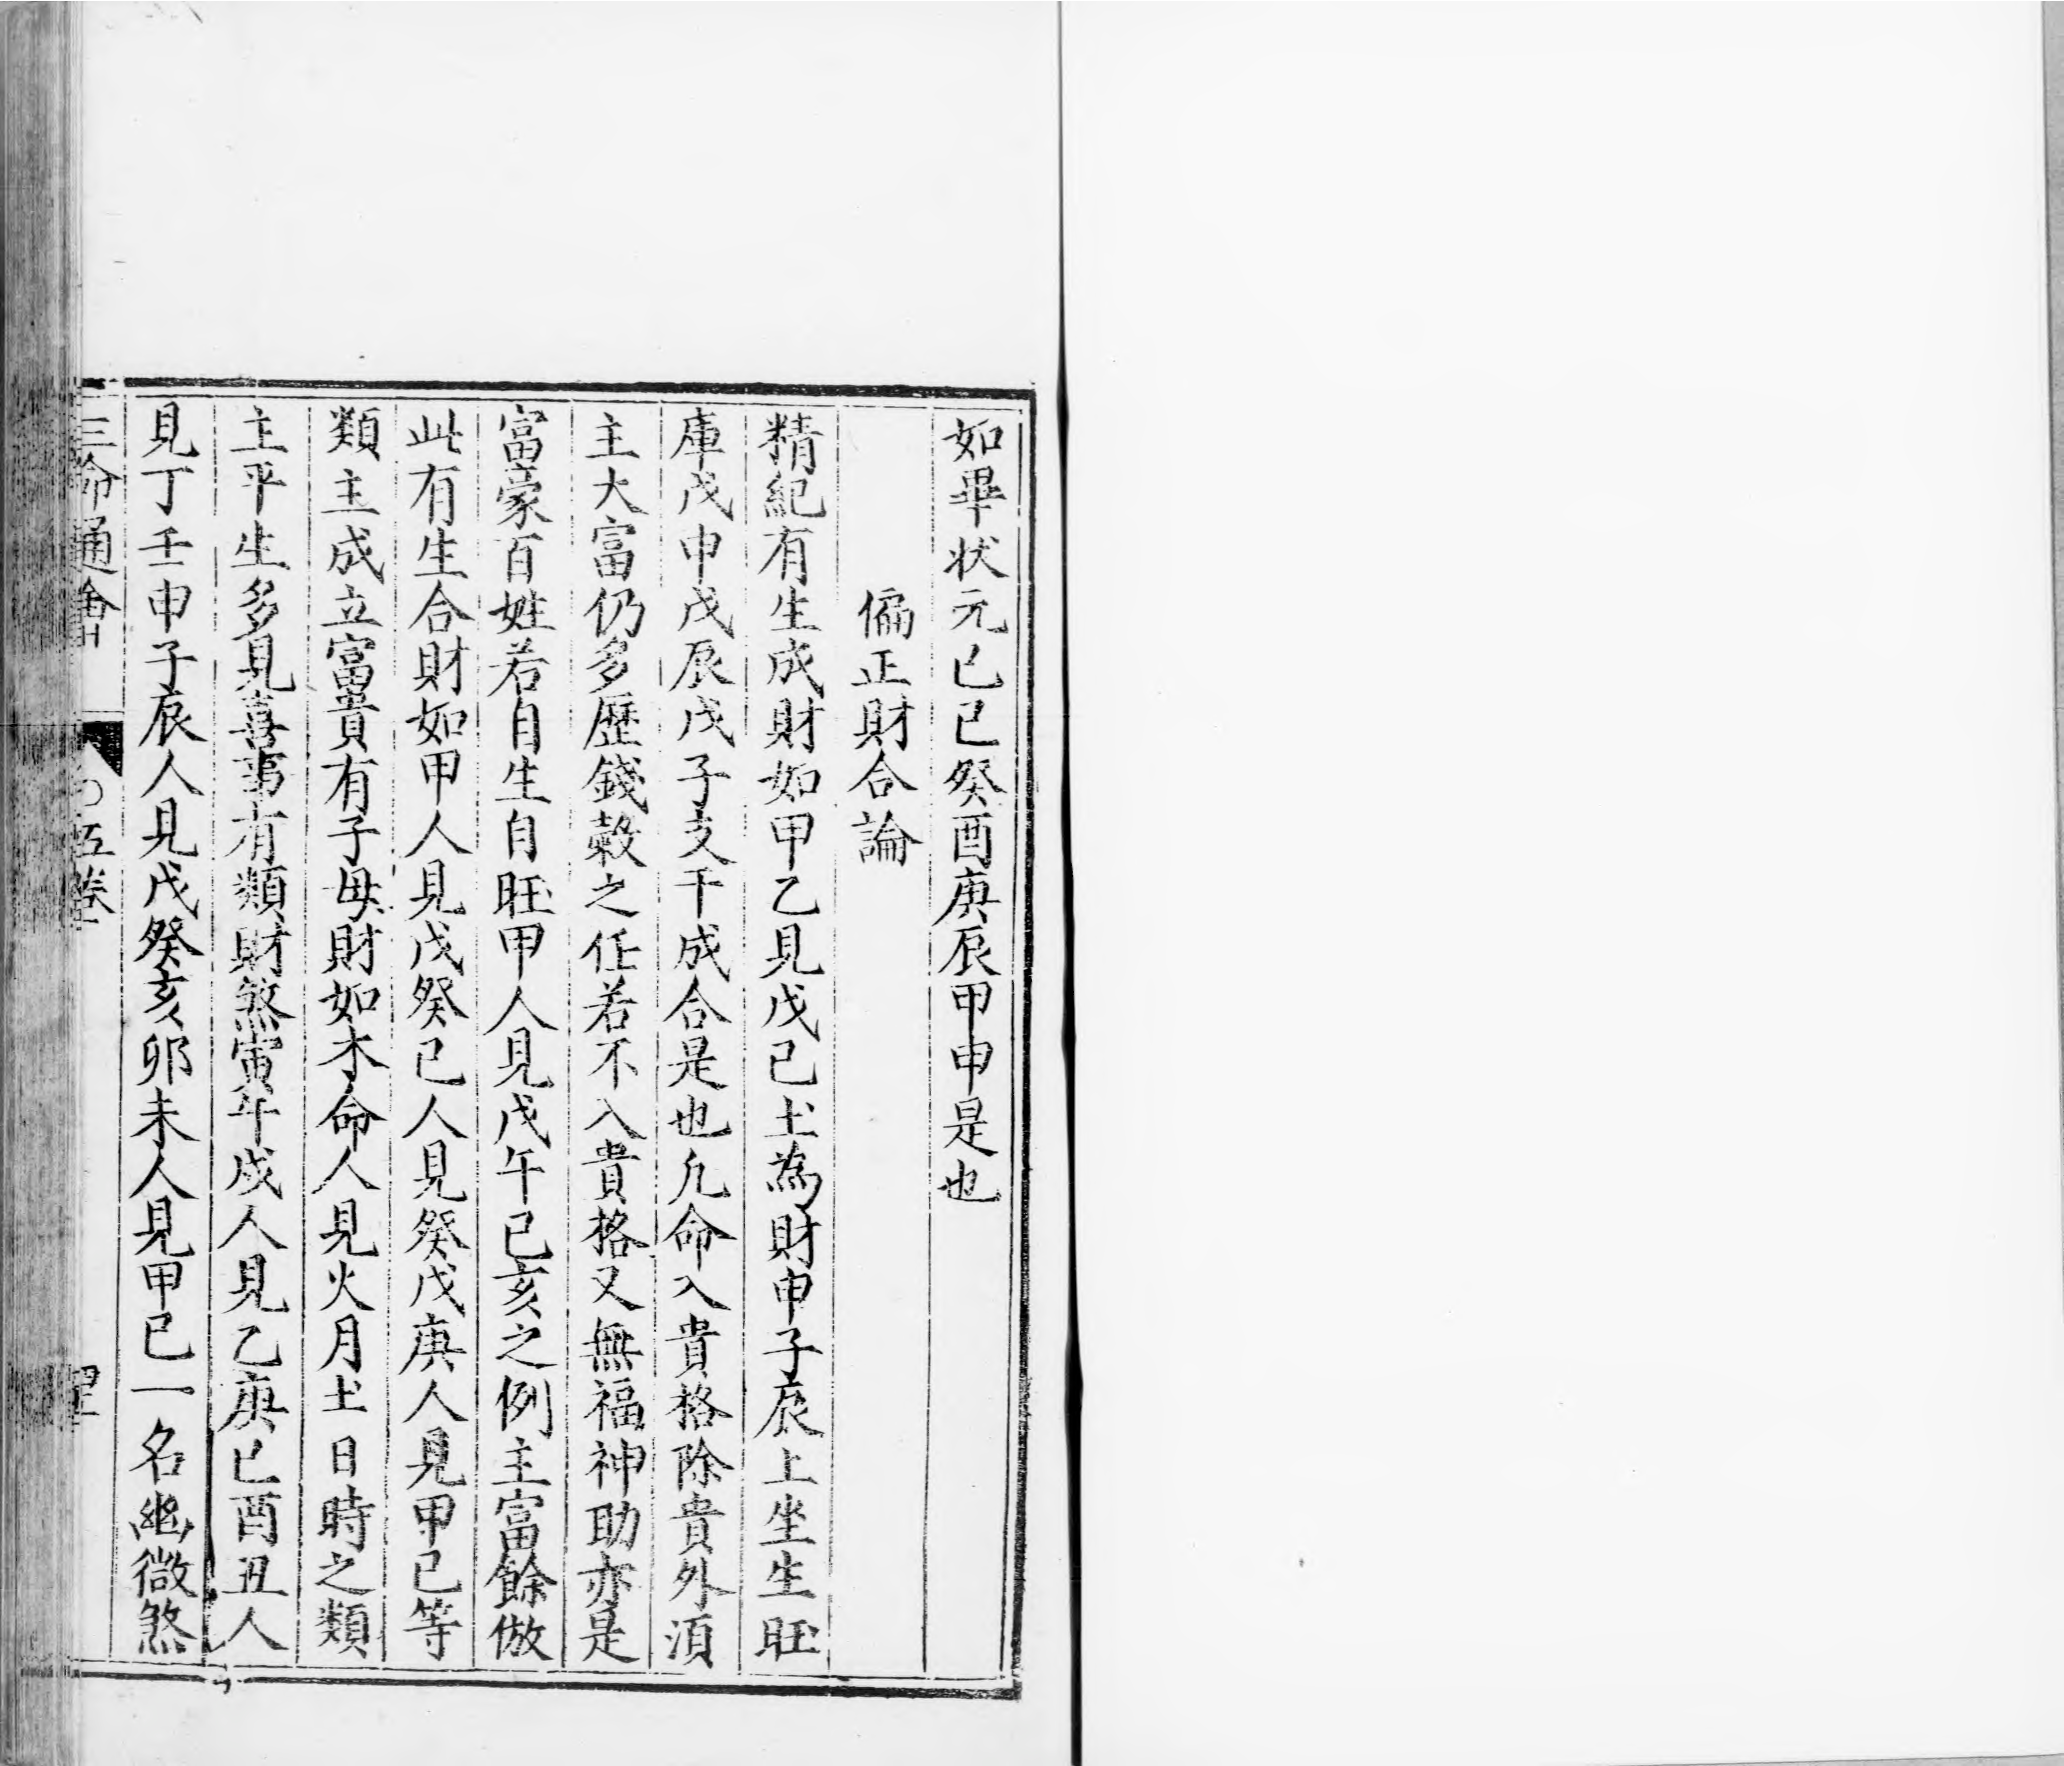 如畢状元己巳癸酉庚辰甲申是也
偏正財合論
精紀有生成財如甲乙見戊己土為財申子辰上坐生旺
庫戊申戊辰戊子支干成合是也凢命入貴格除貴外湏
主大富仍多歷錢穀之任若不入貴格又無福神助亦是
富豪百姓若自生自旺甲人見戊午已亥之例主富餘倣
此有生合財如甲人見戊癸己人見癸戊庚人見甲己等
類主成立富貴有子母財如木命人見火月土日時之類
主平生多見喜事有類財煞寅午戍人見乙庚巳酉丑人
見丁壬申子辰人見戊癸亥卯未人見甲己一名幽微煞
三命通會 五卷